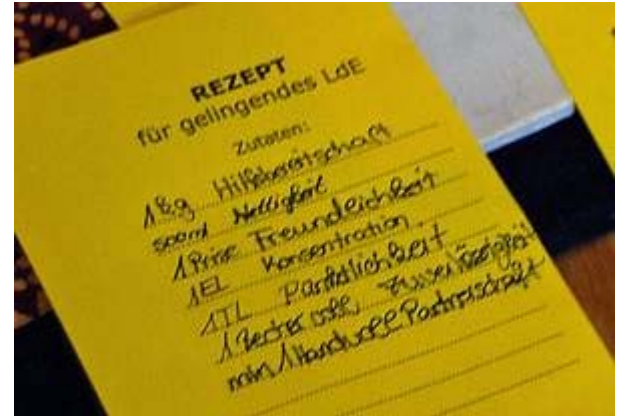 REZEPT
für gelingendes LdE
Zutaten:
1 kg Hilfsbereitschaft
500ml Nettigkeit
1 Prise Freundlichkeit
1EL Konsentration
1TL Pünktlichkeit
1 Becher voll Zuverlässigkeit
min 1 Handvoll Partnerschaft